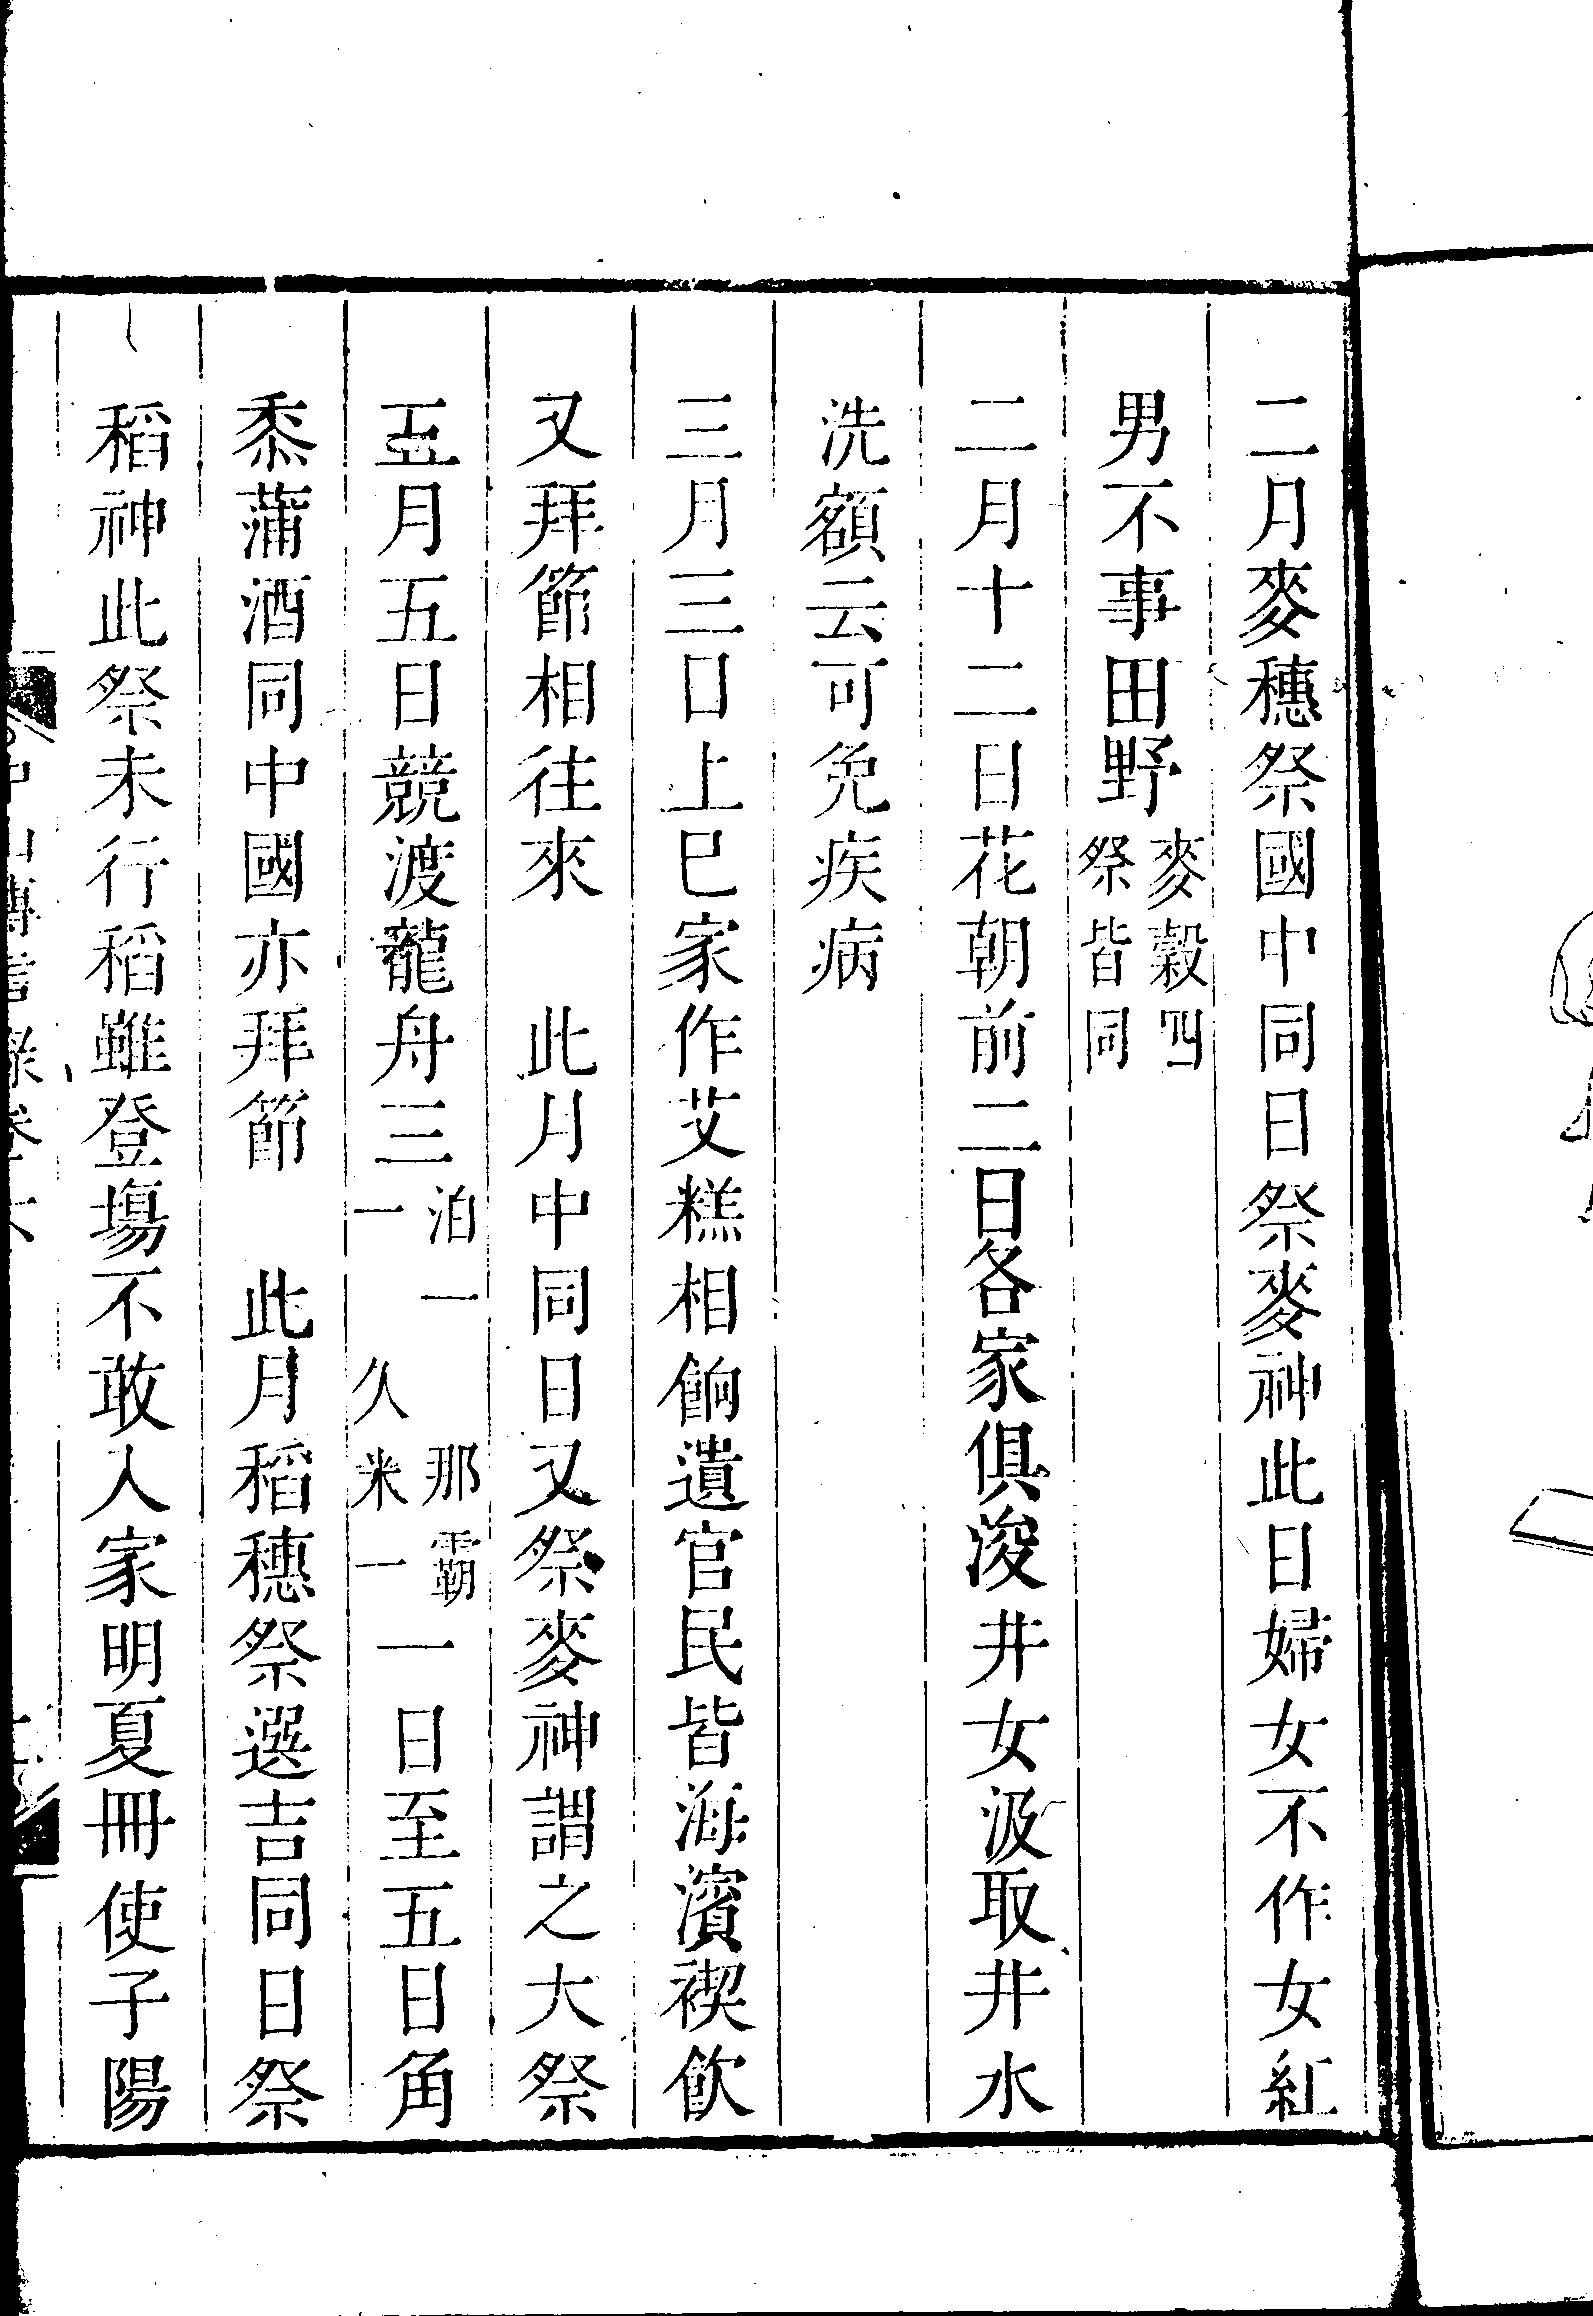 二月麥穗祭國中同日祭麥神此日婦女不作女紅
男不事田野麥穀四祭皆同
二月十二日花朝前二日各家俱浚井女汲取井水
洗額云可免疾病
三月三口上巳家作艾糕相餉遺官民皆海濱禊飲
又拜節相往來　此月中同日又祭麥神謂之大祭
五月五日競渡龍舟三泊一那霸一久米一一日至五日角
黍蒲酒同中國亦拜節　此月稻穗祭選吉同日祭
稻神此祭未行稻雖登塲不敢入家明夏冊使子陽
中山傳信錄卷六